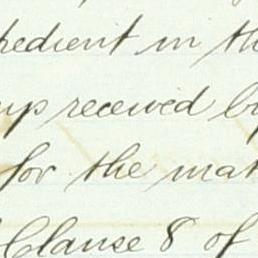 pedient in th
up received b
for the mat
Clause 8 of